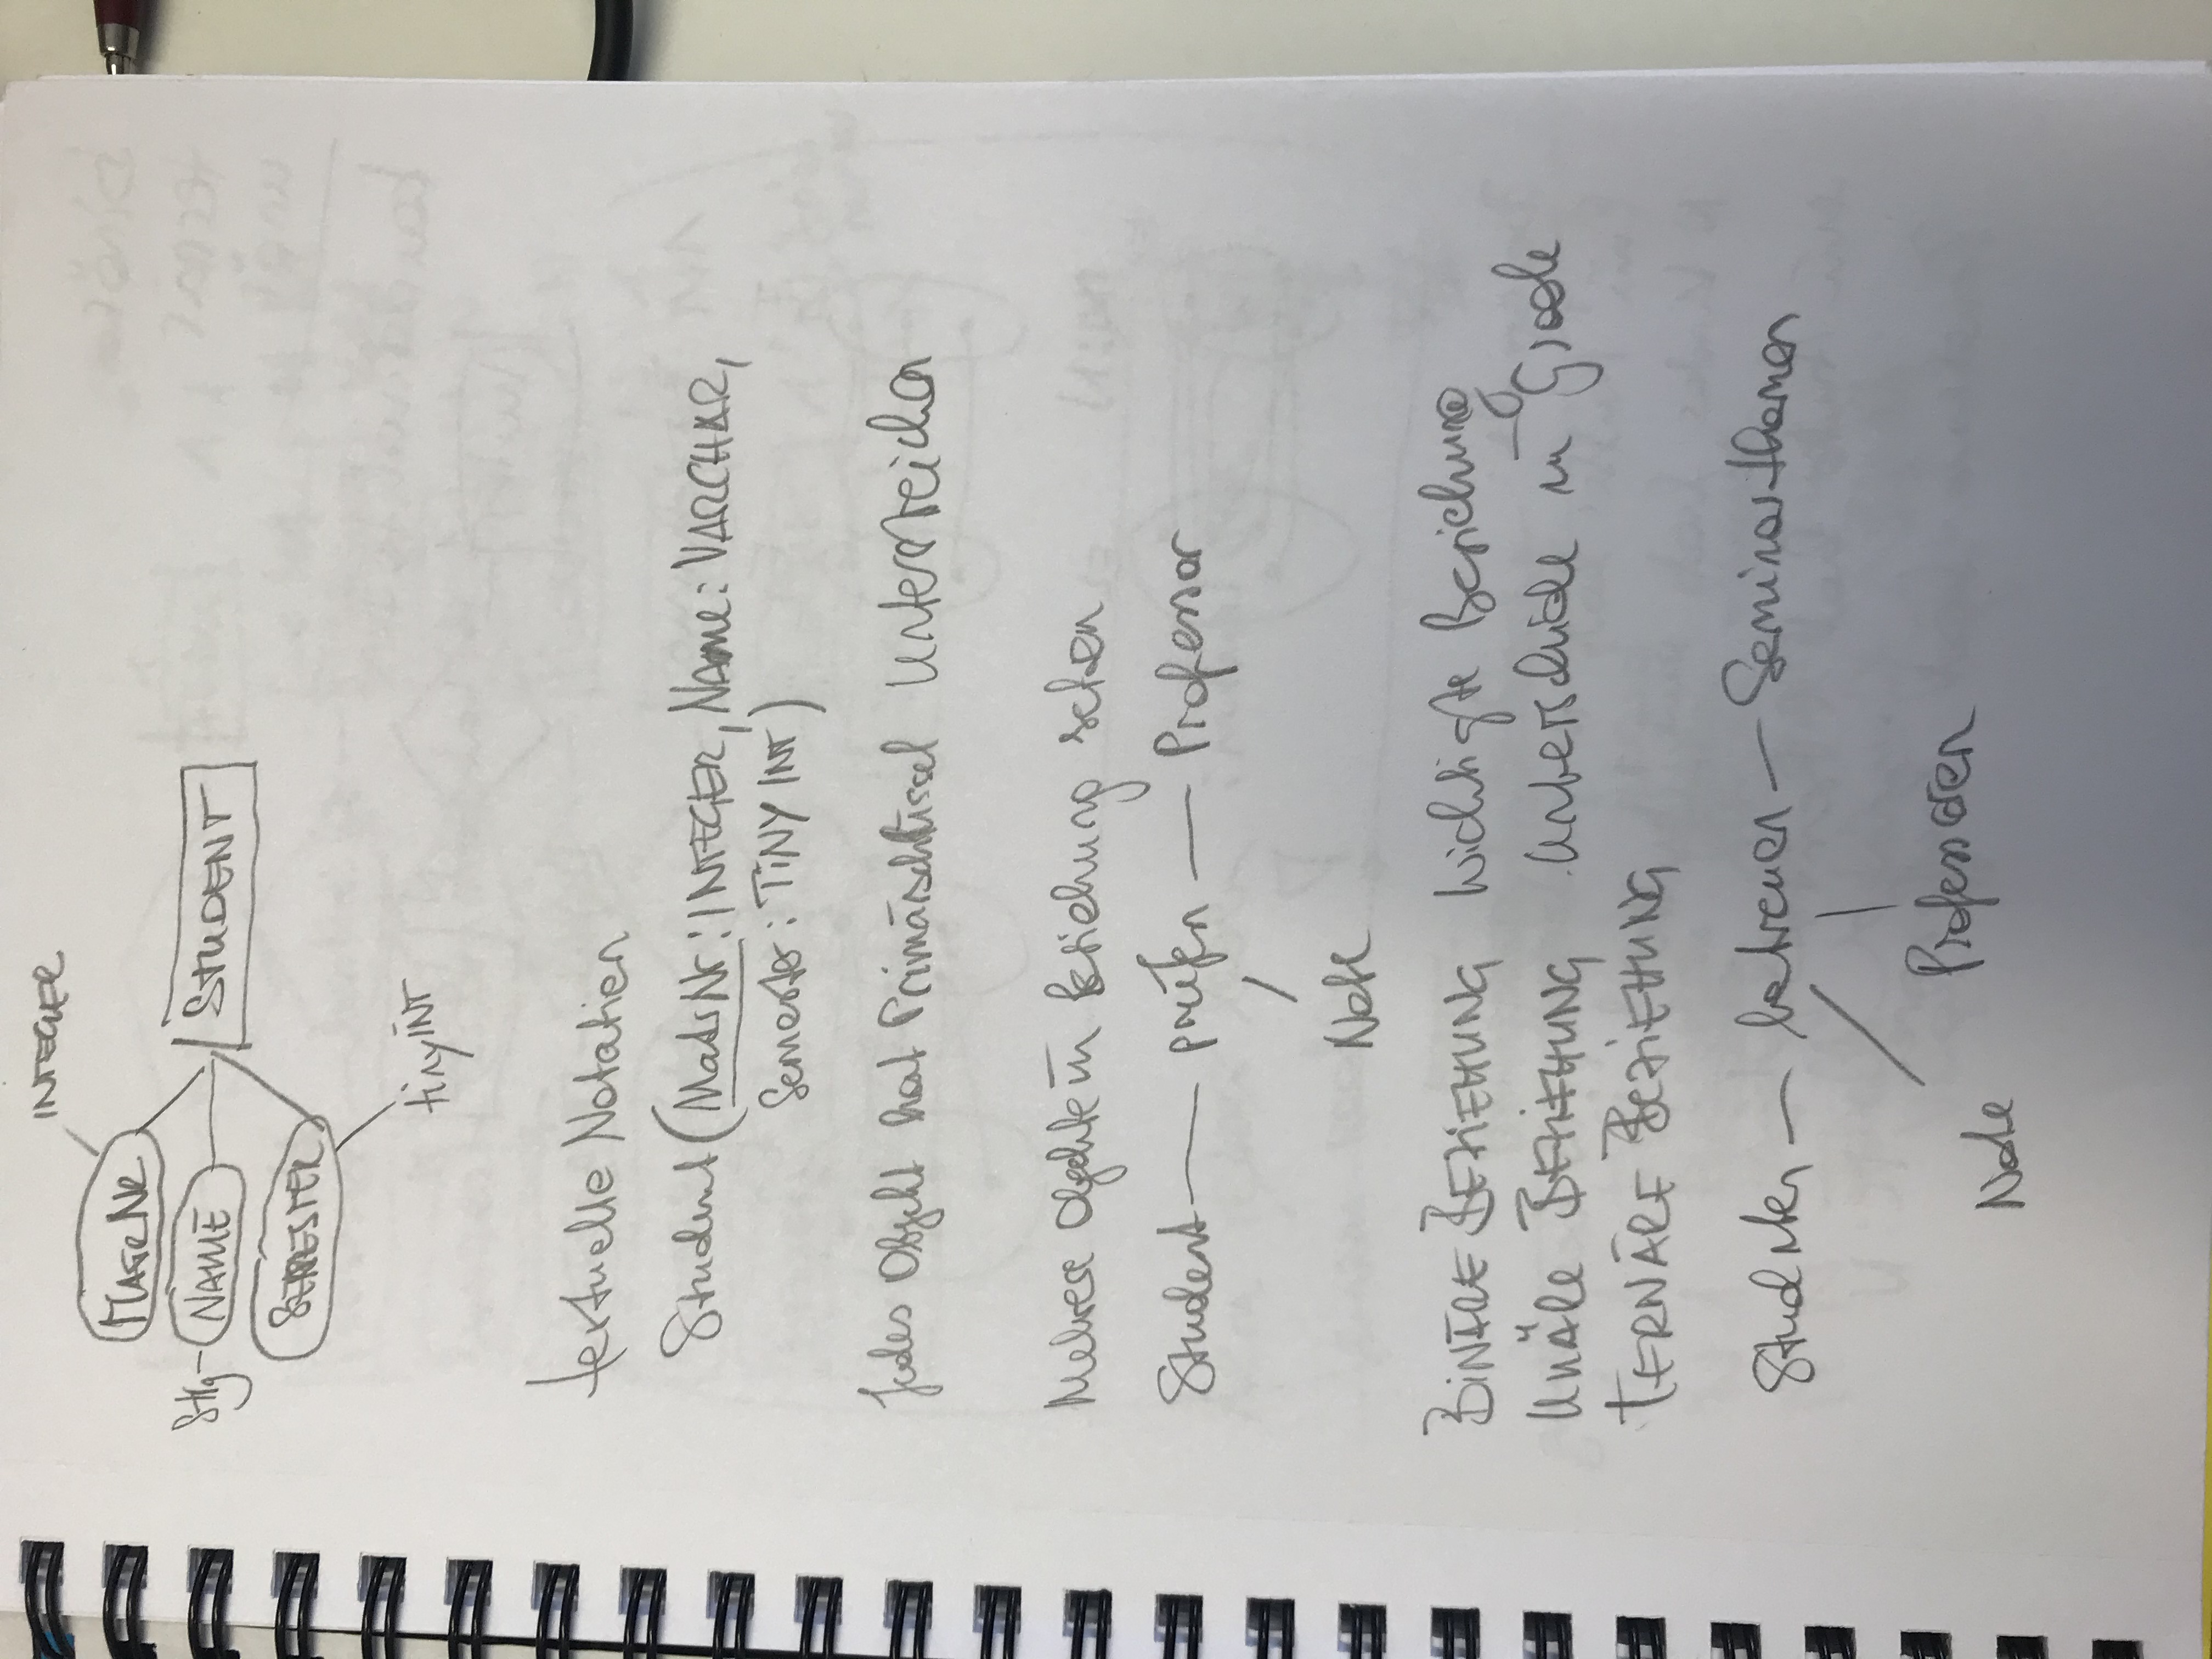 INTEGER
MATRNR
Stg NAME STUDENT
SEMESTER
tinyINT
textuelle Notation
Student (MatrNr: INTEGER, Name: VARCHAR,
Semester: TINY INT)
Jedes Objekt hat Primärschlüssel Unterstreichen
Mehrere Objekte in Beziehung setzen
Student — prüfen — Professor
Note
BINÄRE BEZIEHUNG Wichtigste Beziehung
UNÄRE BEZIEHUNG Unterschiede in
TERNÄRE BEZIEHUNG
Studenten — betreuen — Seminarthemen
Professoren
Note